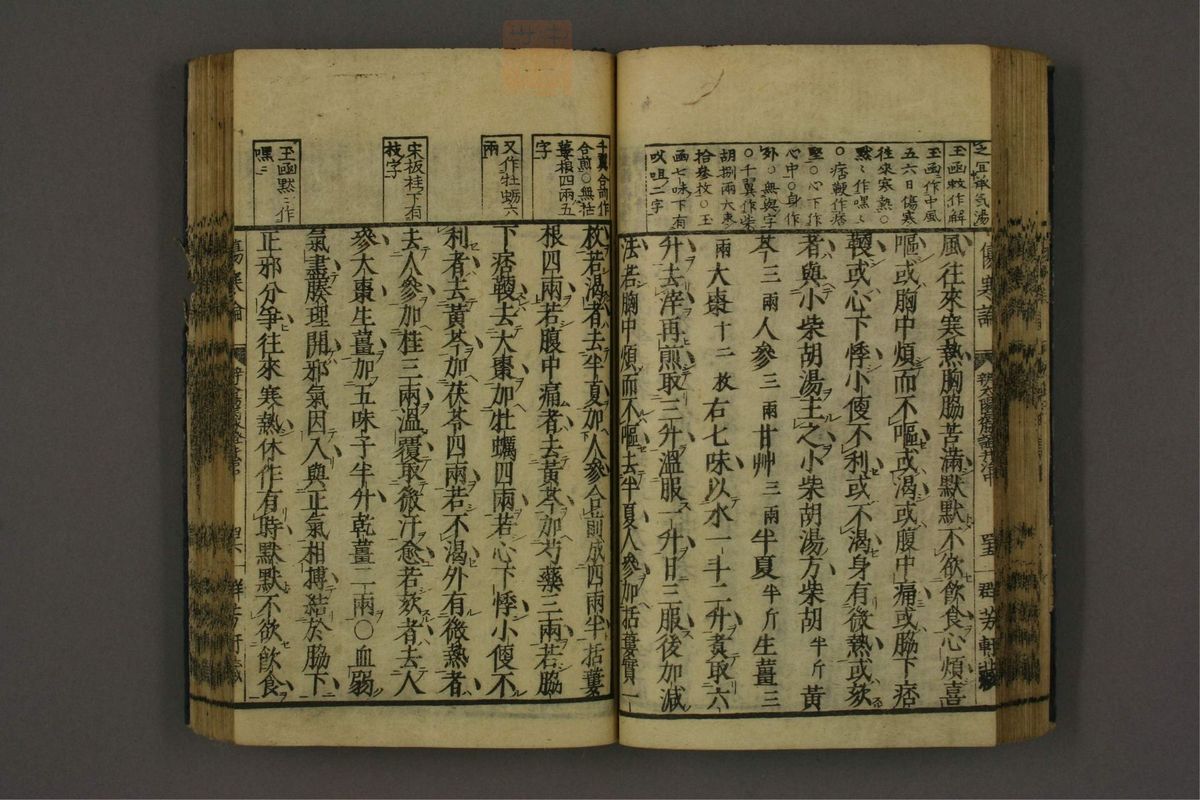 之宜承気湯
玉函敕作解
玉函作中風
五六日傷寒
往來寒熱○
默〻作嘿〻
○痞鞕作痞
堅○心下作
心中○身作
外○無與字
○千翼作柴
胡捌兩大棗
拾叁枚○玉
函七味下有
㕮咀二字
傷寒論
風往來寒熱胸脇苦滿默默不欲飲食心煩喜
嘔或胸中煩而不嘔或渴或腹中痛或脇下痞
鞕或心下悸小便不利或不渴身有微熱或欬
者與小柴胡湯主之小柴胡湯方柴胡半斤黃
芩三兩人參三兩甘艸三兩半夏半斤生薑三
兩大棗十二枚右七味以水一斗二升煑取六
升去滓再煎取三升溫服一升日三服後加減
法若胸中煩而不嘔去半夏人參加括蔞實一
千翼合前作
合煎○無括
蔞根四兩五
字
又作牡蛎六
兩
宋板桂下有
枝字
玉函默〻作
嘿〻
枚若渴者去半夏加人參合前成四兩半括蔞
根四兩若腹中痛者去黃芩加芍藥三兩若脇
下痞鞕去大棗加牡蠣四兩若心下悸小便不
利者去黃芩加茯苓四兩若不渴外有微熱者
去人參加桂三兩溫覆取微汗愈若欬者去人
參大棗生薑加五味子半升乾薑二兩○血弱
氣盡腠理開邪氣因入與正氣相搏結於脇下
正邪分爭往來寒熱休作有時默默不欲飲食
傷寒論